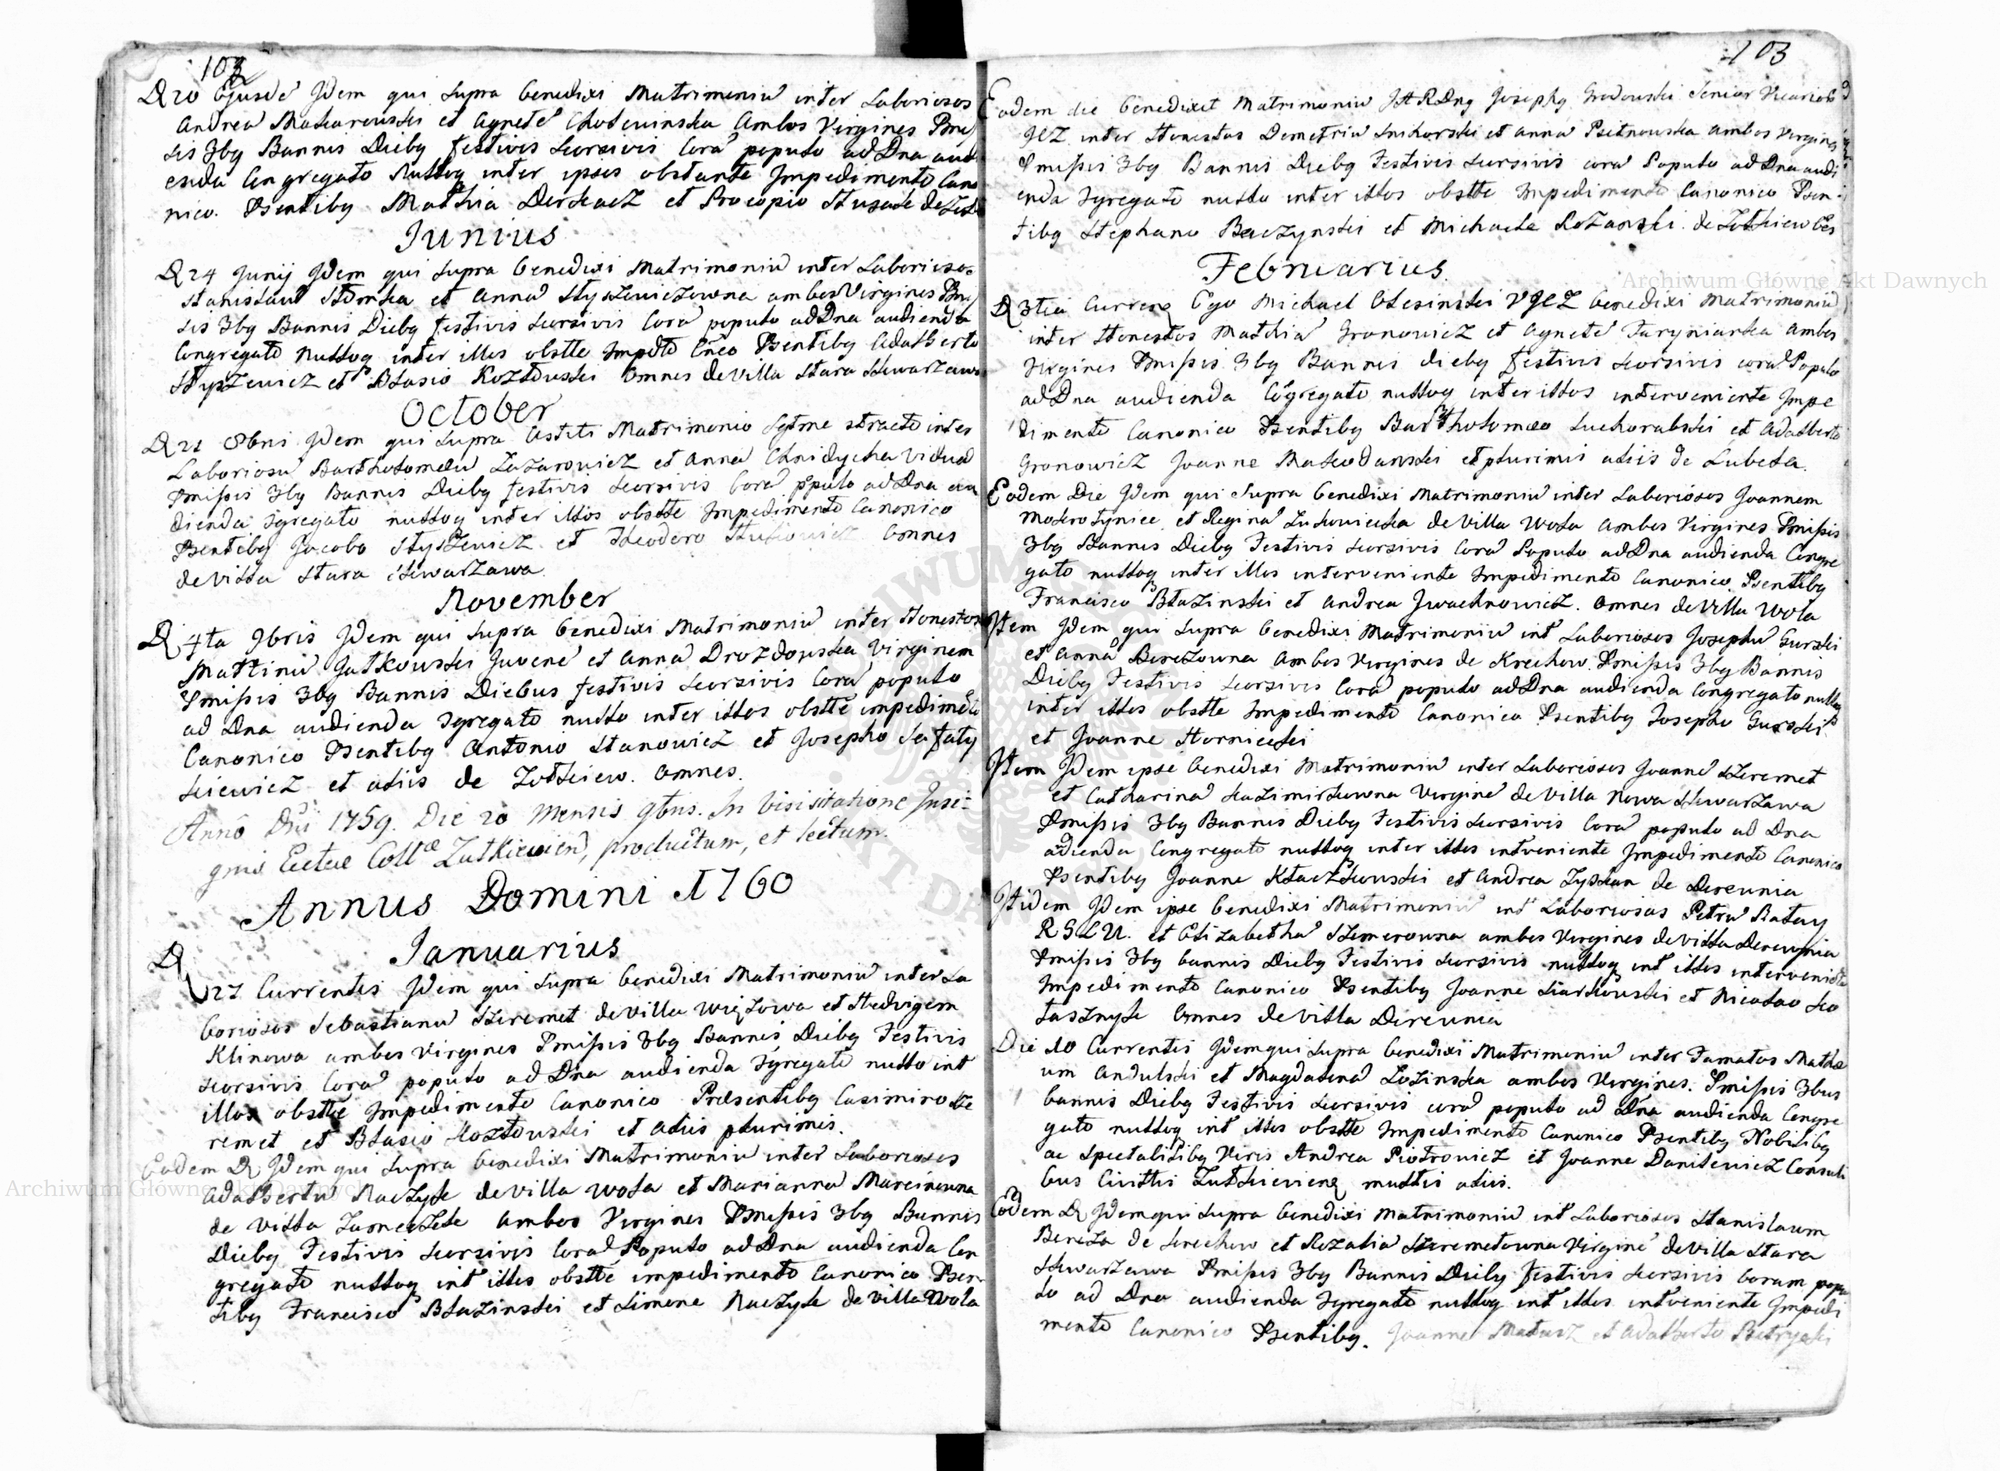 103
D 20 Ejusdē Jdem qui supra benedixi Matrimoniū inter Laboriosos
Andreā Makarowski et Agnetē Chotewinska Ambos Virgines Pmis
sis 3bȝ Bannis Diebȝ festivis seorsivis Corā populo ad Dna audi
enda Congregato Nulloq inter ipsos obstante Jmpedimento Cano
nico. Psentibȝ Mathia Derkacz et Procopio
Junius
D 24 Junij Jdem qui supra benedixi Matrimoniū inter Laborioso-
Stanislaū Słomka et Annā Styszewiczowna ambos Virgines Pmis
sis 3bȝ Bannis Diebȝ festivis seorsivis Corā populo ad Dna audienda
Congregato Nulloq inter illos obstte Impdto Cnco Psentibȝ Adalberto
Styszewicz et Blasio Kozłowski omnes de villa Stara Skwarzawa
October
D 21 8bri Jdem qui supra Astiti Matrimonio Lgtme stracto inter
Laboriosū Bartholomeū Lazarowicz et Annā Chnidycha Viduā
Pmissis 3bȝ Bannis Diebȝ festivis seorsivis Corā ppulo ad Dna au
dienda Jgregato nulloq inter illos obstte Jmpedimento Canonico
Psentibȝ Jacobo Styszewicz et Theodoro omnes
de villa Stara Skwarzawa
November
D 4ta 9bris Jdem qui supra benedixi Matrimoniū inter Honestos
Martinū Jatkowski Juvenē et Annā Drozdowska Virginem
Pmissis 3bȝ Bannis Diebus festivis seorsivis Corā populo
ad Dna audienda Jgregato nullo inter illos obstte impedimēto
Canonico Psentibȝ Antonio Stanowicz et Josepho Safaty
kiewicz et aliis de Zołkiew. omnes.
Annô Dni 1759. Die 20 Mensis 9bris. In Visitatione Insi-
gnis Eccleæ Collæ Zulkievien, productum, et lectum.
Annus Domini 1760
Januarius
D 27 Currentis Jdem qui supra benedixi Matrimoniū inter La
boriosos Sebastianū Szeremet de villa Więzowa et Hedvigem
Klinowa ambos Virgines Pmissis 3bȝ Bannis Diebȝ Festivis
seorsivis Corā populo ad Dna audienda Jgregato nullo int
illos obstte Jmpedimento Canonico Præsentibȝ Casimiro Sze
remet et Blasio Kozłowski et Aliis plurimis.
Eodem D Jdem qui supra benedixi Matrimoniū inter Laboriosos
Adalbertū Raczyłe de villa Wola et Mariannā Marciniowna
de villa Zameczek ambos Virgines Pmissis 3bȝ Bannis
Diebȝ Festivis seorsivis Corā Populo ad Dna audienda Con
gregato nulloq int illos obstte impedimento Canonico Psen
tibȝ Francisco Blazinski et Simone Raczyłe de villa Wola
103
Eodem die benedixit Matrimoniū JARDnȝ Josephȝ Grodowski Senior Vicariȝ
JEZ inter Honestos Demetriū Snihorski et Anna Psitnowska ambos Virgines
Pmissis 3bȝ Bannis Diebȝ Festivis seorsivis corā Populo ad Dna audi
enda Jgregato nullo inter illos obstte Jmpedimento Canonico Psen
tibȝ Stephano Baczynski et Michaele Rozanski de Zołkiew
Februarius
D 3tia Curren Ego Michael Olesinski VJEZ benedixi Matrimoniū
inter Honestos Mathiā Gronowicz et Agnetē Taryniarska Ambos
Virgines Pmissis 3bȝ Bannis diebȝ festivis seorsivis corā Populo
ad Dna audienda Cōgregato nulloq inter illos interveniente Jmpe
dimento Canonico Psentibȝ Bartholomæo Suchorabski et Adalberto
Gronowicz Joanne Małkodanski et plurimis aliis de Lubela.
Eodem Die Jdem qui supra benedixi Matrimoniū inter Laboriosos Joannem
Mokrotynice et Reginā Ludowicska de Villa Wola Ambos Virgines Pmissis
3bȝ Bannis Diebȝ Festivis seorsivis Corā Populo ad Dna audienda Congre
gato nulloq inter illos interveniente Jmpedimento Canonico Psentibȝ
Francisco Błazinski et Andrea Jwachnowicz. omnes de villa Wola
Jtem Jdem qui supra benedixi Matrimoniū int Laboriosos Josephū Gurski
et Annā Berezowna Ambos Virgines de Krechow. Pmissis 3bȝ Bannis
Diebȝ Festivis seorsivis Corā populo ad Dna audienda Congregato nulloq
inter illos obstte Jmpedimento Canonico Psentibȝ Josepho Gurski
et Joanne Hornicski
Jtem Jdem ipse benedixi Matrimoniū inter Laboriosos Joannē Szeremet
et Catharinā Kazimirkowna Virginē de villa Nowa Skwarzawa
Pmissis 3bȝ Bannis Diebȝ Festivis seorsivis Corā populo ad Dna
adienda Congregato nulloq inter illos intveniente Jmpedimento Canonico
Psentibȝ Joanne Kłaczkowski et Andrea Zyskan de Derewnia
Jtidem Jdem ipse benedixi Matrimoniū int Laboriosos Petrū Ratay
RSLU. et Elizabethā Szmerowna ambos Virgines de villa Derewnia
Pmissis 3bȝ bannis Diebȝ Festivis seorsivis nulloq int illos intervenite
Jmpedimento Canonico Psentibȝ Joanne Siarkowski et Nicolao Ko
łasznyk omnes de villa Derewnia
Die 10 Currentis Jdem qui supra benedixi Matrimoniū inter Famatos Mathæ
um Andulski et Magdalenā Lozinska ambos Virgines. Pmissis 3bus
bannis Diebȝ Festivis seorsivis corā populo ad Dna audienda Congre
gato nulloq int illos obstte Jmpedimento Canonico Psentibȝ Nobilibȝ
ac Spectabilibȝ Viris Andrea Piotrowicz et Joanne Danilewicz Consuli
bus Civittis Zulkievienȝ multis aliis.
Eodem D Jdem qui supra benedixi Matrimoniū int Laboriosos Stanislaum
Bereza de Krechow et Rozaliā Szeremetowna Virginē de villa Stara
Skwarzawa Pmissis 3bȝ Bannis Diebȝ festivis seorsivis Coram popu
lo ad Dna audienda Jgregato nulloq int illos intveniente Jmpedi
mento Canonico Psentibȝ. Joanne Matusz et Adalberto Petryski
Archiwum Główne Akt Dawnych
Archiwum Główne Akt Dawnych